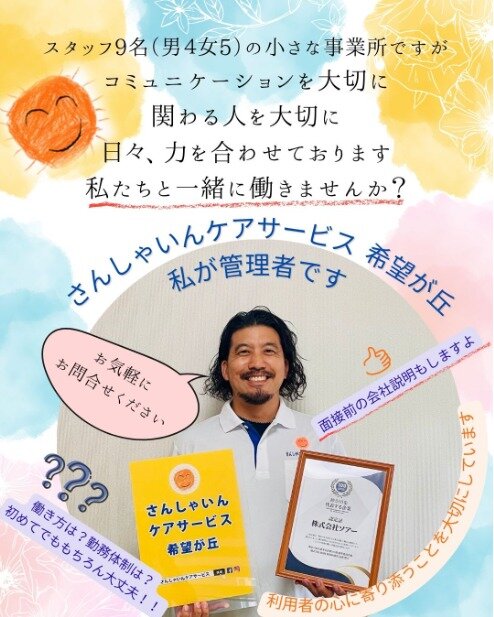 スタッフ9名(男4女5)の小さな事業所ですが
コミュニケーションを大切に
関わる人を大切に
日々、力を合わせております
私たちと一緒に働きませんか?
さんしゃいんケアサービス 希望が丘
私が管理者です
お気軽に
お問合せください
面接前の会社説明もしますよ
利用者の心に寄り添うことを大切にしています
???
働き方は?勤務体制は?
初めてでももちろん大丈夫!!
さんしゃいん
ケアサービス
希望が丘
さんしゃいんケアサービス
認定証
株式会社ツアー